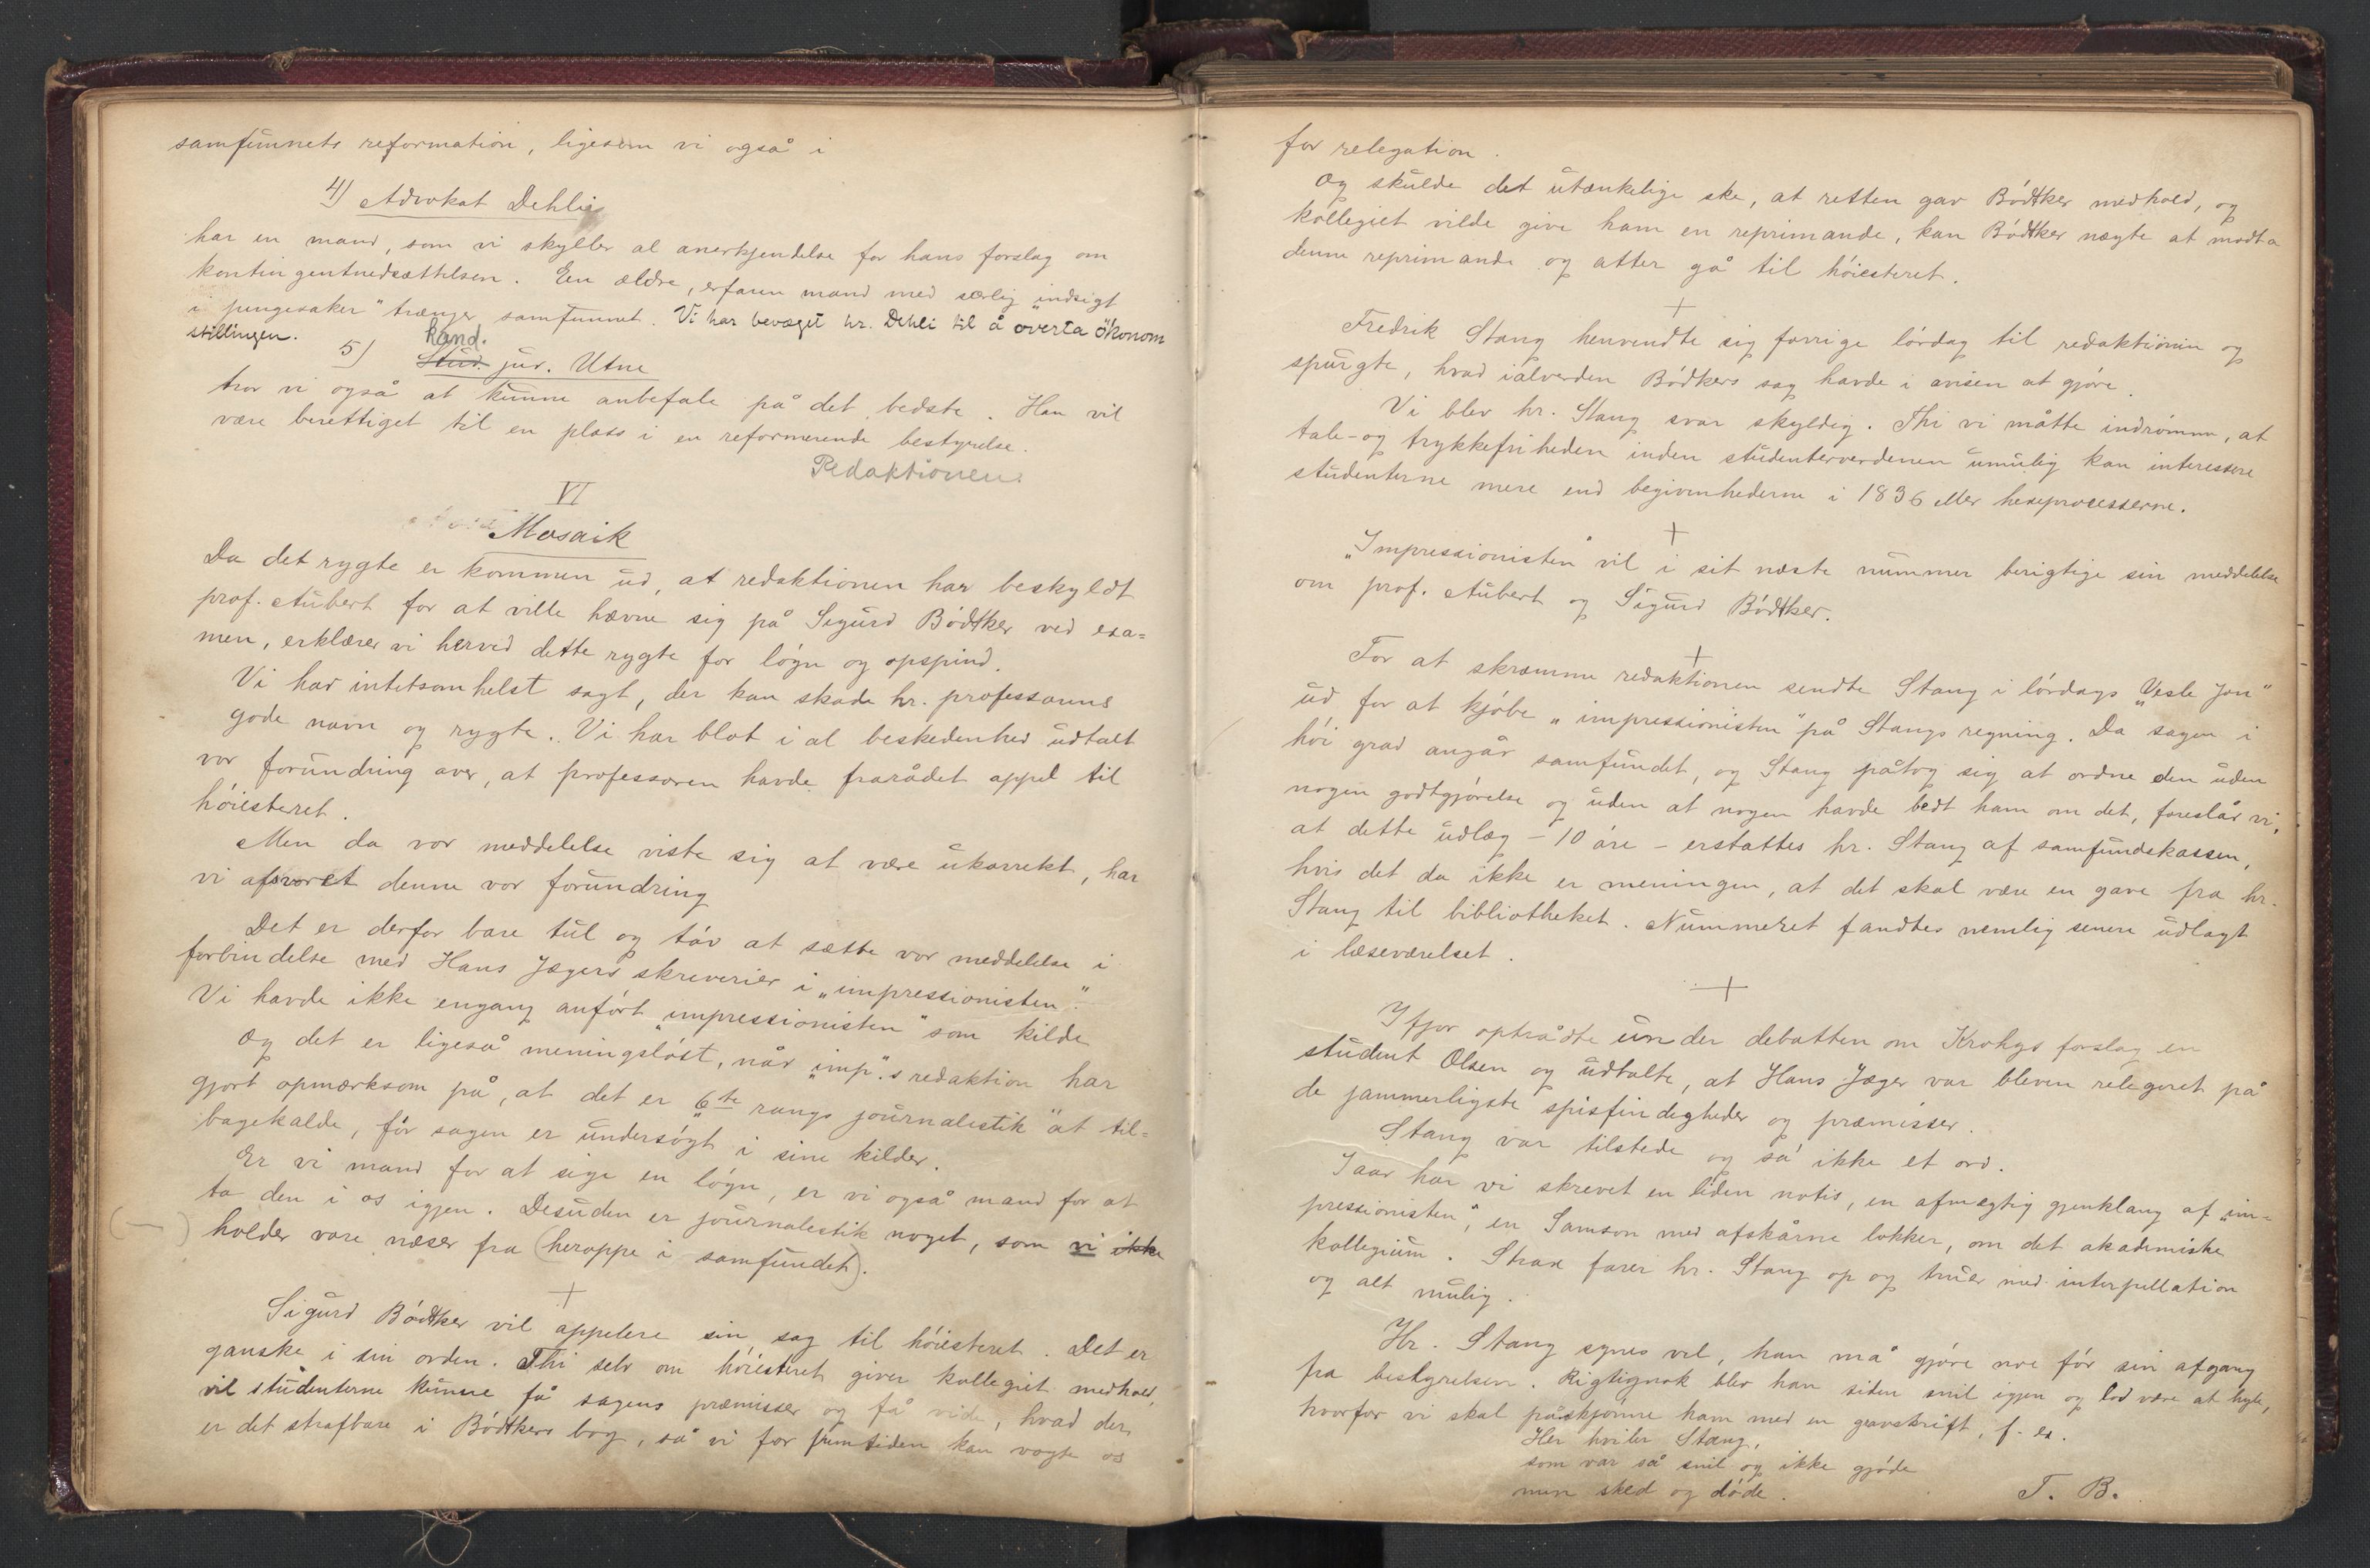 samfunnets reformation, ligesom vi også i
4) Advokat Dehlie
har en mand, som vi skylder al anerkjendelse for hans forslag om
kontingentnedsættelsen. En ældre, erfaren mand med særlig "indsigt
i pengesaker" trænger samfunnet. Vi har bevæget hr. Dehli til å overta ökonom
stillingen.
kand.
5) Stud. jur. Utne
tror vi også at kunne anbefale på det bedste. Han vil
være berettiget til en plass i en reformerende bestyrelse.
Redaktionen.
VI
Mosaik
Da det rygte er kommen ud, at redaktionen har beskyldt
prof. Aubert for at ville hævne sig på Sigurd Bódtker ved exa=
men, erklærer vi herved dette rygte for lógn og opspind.
Vi har intetsomhelst sagt, der kan skade hr. professorens
gode navn og rygte. Vi har blot i al beskedenhed udtalt
vor forundring over, at professoren havde frarådet appel til
hóiesteret.
Men da vor meddelelse viste sig at være ukorrekt, har
vi afsvoret denne vor forundring
Det er derfor bare tul og tóv at sætte vor meddelelse i
forbindelse med Hans Jægers skreverier i „impressionisten".
Vi havde ikke engang anfórt „impressionisten" som kilde
Og det er ligeså meningslóst, når „imp".s redaktion har
gjort opmærksom på, at det er „6te rangs journalistik" at til=
bagekalde, fór sagen er undersógt i sine kilder.
Er vi mand for at sige en lógn, er vi også mand for at
ta den i os igjen. Desuden er journalestik noget, som vi ikke
( — ) holder vore næser fra (heroppe i samfundet).
+
Sigurd Bódtker vil appelere sin sag til hóiesteret. Det er
ganske i sin orden. Thi selv om hóiesteret giver kollegiet medhold,
vil studenterne kunne få sagens præmisser og få vide, hvad der
er det strafbare i Bódtkers bog, så vi for fremtiden kan vogte os
for relegation.
Og skulde det utænkelige ske, at retten gav Bódtker medhold, og
kollegiet vilde give ham en reprimande, kan Bódtker nægte at modta
denne reprimande og atter gå til hóiesteret.
+
Fredrik Stang henvendte sig forrige lórdag til redaktionen og
spurgte, hvad ialverden Bódkers sag havde i avisen at gjóre.
Vi blev hr. Stang svar skyldig. Thi vi måtte indrómme, at
tale- og trykkefriheden inden studenterverdenen umulig kan interessere
studenterne mere end begivenhederne i 1836 eller hexeprocesserne.
+
„Impressionisten" vil i sit næste nummer berigtige sin meddelelse
om prof. Aubert og Sigurd Bódtker.
+
For at skræmme redaktionen sendte Stang i lórdags „Vesle Jon"
ud for at kjóbe „impressionisten" på Stangs regning. Da sagen i
hói grad angår samfundet, og Stang påtog sig at ordne den uden
nogen godtgjórelse og uden at nogen havde bedt ham om det, foreslår vi,
at dette udlæg – 10 óre – erstattes hr. Stang af samfundskassen,
hvis det da ikke er meningen, at det skal være en gave fra hr.
Stang til bibliotheket. Nummeret fandtes nemlig senere udlagt
i læseværelset.
+
Ifjor optrådte under debatten om Krohgs forslag en
student Olsen og udtalte, at Hans Jæger var bleven relegeret på
de jammerligste spisfindigheder og præmisser.
Stang var tilstede og sa' ikke et ord.
Iaar har vi skrevet en liden notis, en afmægtig gjenklang af „im=
pressionisten", en Samson med afskårne lokker, om det akademiske
kollegium. Strax farer hr. Stang op og truer med interpellation
og alt mulig.
Hr. Stang synes vel, han må gjóre noe fór sin afgang
fra bestyrelsen. Rigtignok blev han siden snil igjen og lod være at hyle,
hvorfor vi skal påskjónne ham med en gravskrift, f. ex.
Her hviler Stang,
som var så snil og ikke gjóde
men sked og dóde.
T. B.